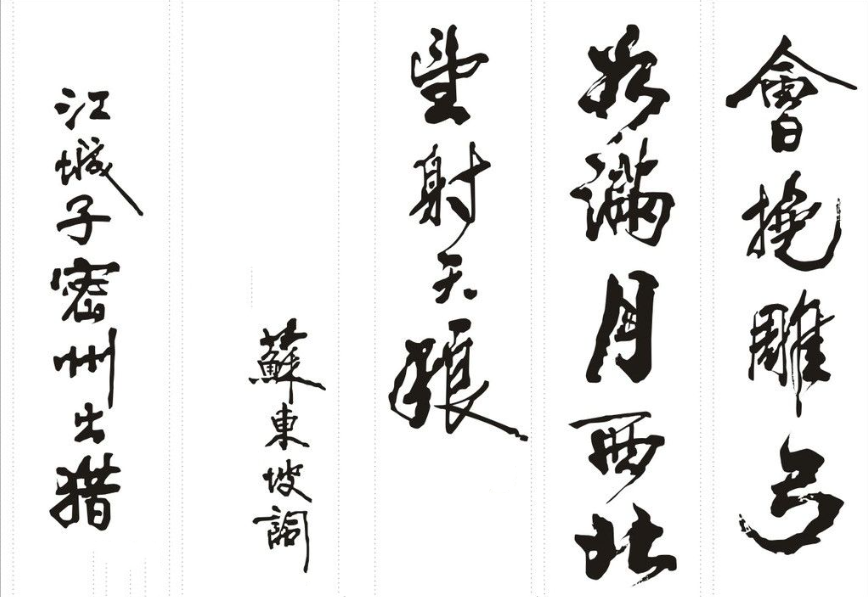 會挽雕弓
如滿月西北
望射天狼
蘇東坡詞
江城子密州出猎